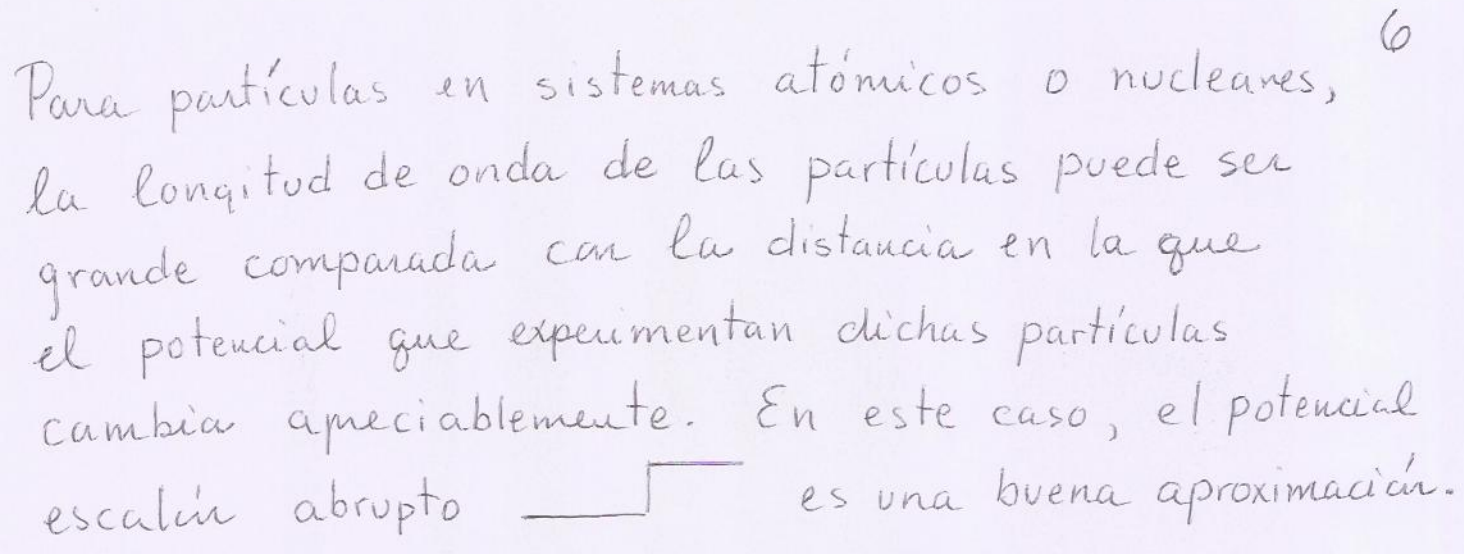 6
Para partículas en sistemas atómicos o nucleares,
la longitud de onda de las partículas puede ser
grande comparada con la distancia en la que
el potencial que experimentan dichas partículas
cambia apreciablemente. En este caso, el potencial
escalón abrupto es una buena aproximación.